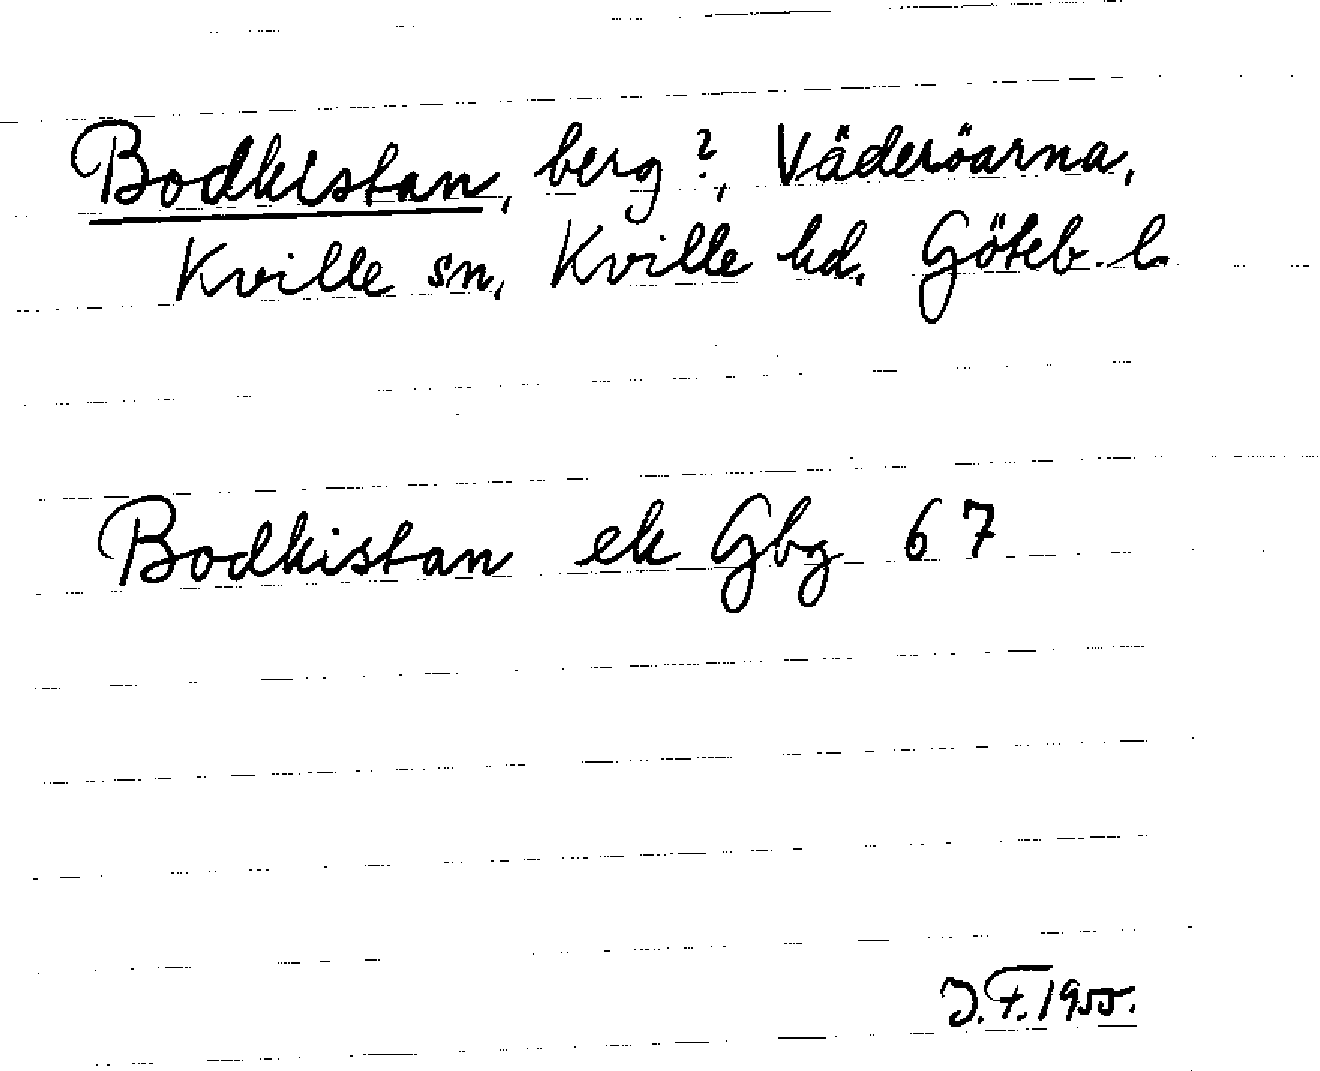 Bodkistan, berg?, Väderöarna,
Kville sn, Kville hd. Göteb. l.
Bodkistan ek Gbg 67
J.F. 1955.